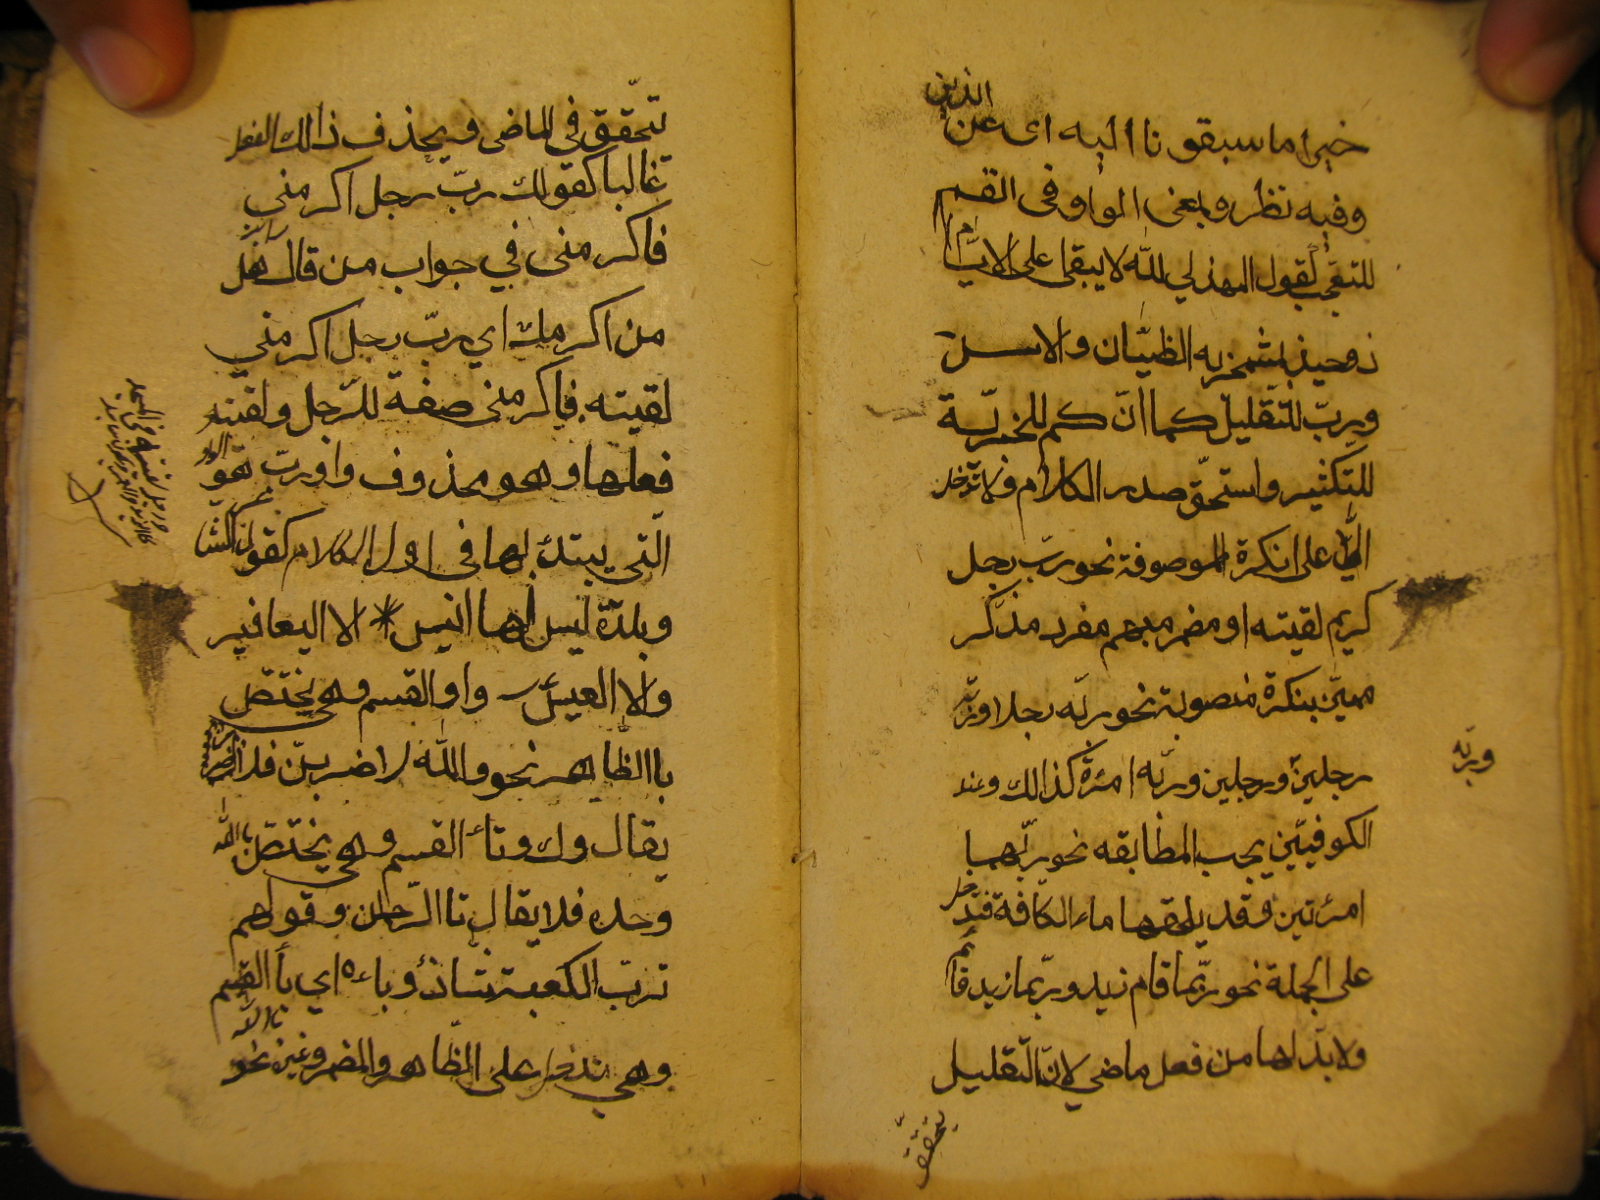 خيرا ما سبقونا اليه اى عن الذين
وفيه نظر وبمعنى الواو فى القسم
للتعجب كقول الهذلي لله لا يبقى على الايام
ذو حيد بمشمخر به الظيّان والاس
وربّ للتقليل كما انّ كم للخبريّة
للتكثير واستحقّ صدر الكلام ولا تدخل
الا على انكرة الموصوفة نحو ربّ رجل
كريم لقيته او مضمر مبهم مفرد مذكّر
مميّز بنكرة منصوبة نحو ربّه رجلا وربّه
رجلين ورجلين وربّه امرءة كذالك وعند
الكوفيّين يجب المطابقه نحو ربّهما
امرءتين وقد يلحقها ماء الكافة فتدخل
على الجملة نحو ربّما قام زيد وربّما زيد قائم
ولا بدّ لها من فعل ماضي لانّ التّقليل
يتحقّق
وربّه
يتحقّق في الماضى ويحذف ذالك الفعل
غالبا كقولك ربّ رجل اكرمني
فاكرمنى في جواب من قال هل
من اكرمك اي ربّ رجل اكرمني
لقيته فاكرمنى صفة للرّجل ولقيته
فعلها وهو محذوف واو ربّ هو الواو
الّتي يبتدئ بها فى اول الكلام كقول الشاعر
وبلدة ليس لها انيس * الا اليعافير
والا العيس واو القسم وهى يختصّ
باالظاهر نحو والله لاضربنّ فلا
يقال وك وتاء القسم وهي يختصّ باالله
وحده فلا يقال تاالرّحمن وقولهم
تربّ الكعبة شاذ وباءه اي باء القسم
وهي تدخل على الظّاهر والمضمر نحو باالله